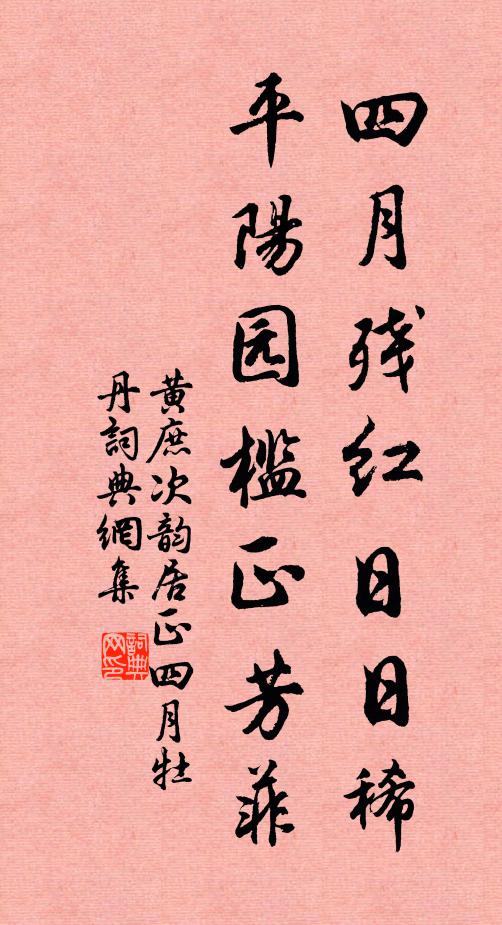 四月残红日日稀
平陽园槛正芳菲
黄庶次韵居正四月牡
丹詞典網集
詞典网印